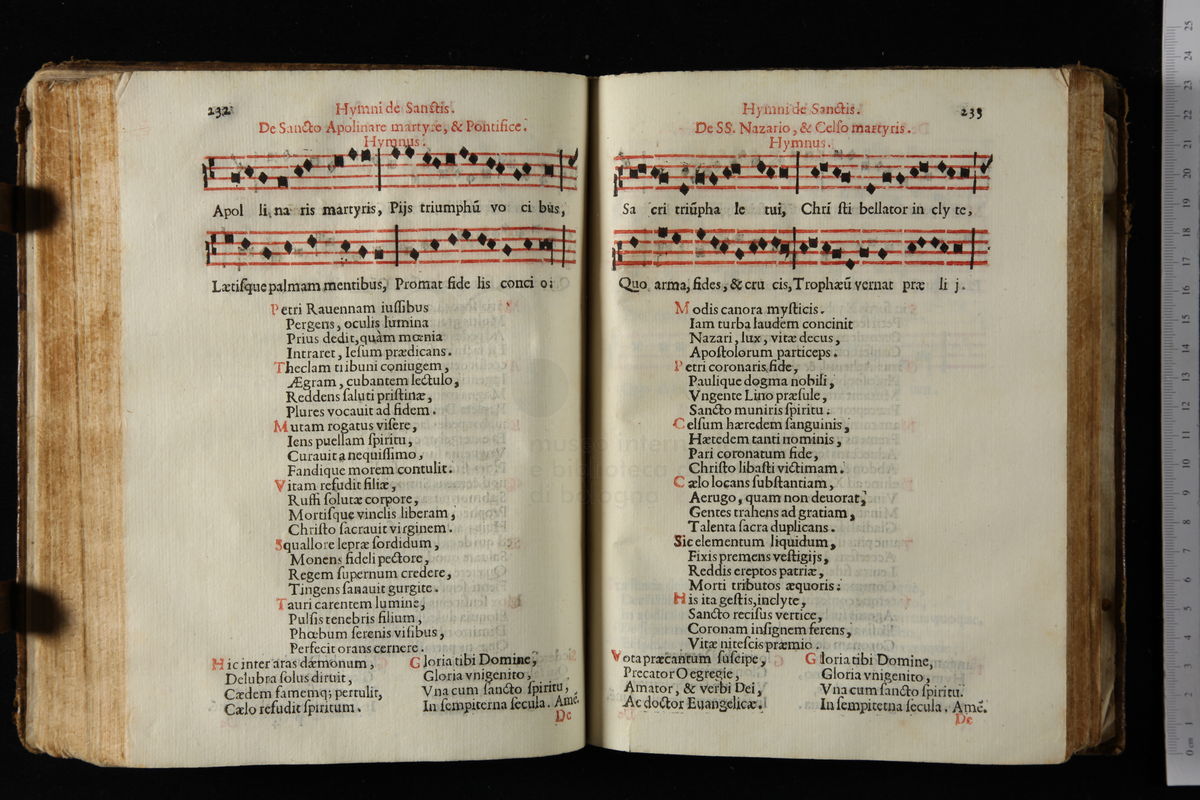 232
Hymni de Sanctis.
De Sancto Apolinare martyre, & Pontifice.
Hymnus.
Apol li na ris martyris, Pijs triumphū vo ci bus,
Lætiſque palmam mentibus, Promat fide lis conci o:
Petri Rauennam iuſſibus
Pergens, oculis lumina
Prius dedit, quàm mœnia
Intraret, Ieſum prædicans.
Theclam tribuni coniugem,
Ægram, cubantem lectulo,
Reddens ſaluti priſtinæ,
Plures vocauit ad fidem.
Mutam rogatus viſere,
Iens puellam ſpiritu,
Curauit a nequiſſimo,
Fandique morem contulit.
Vitam refudit filiæ,
Ruffi ſolutæ corpore,
Mortiſque vinclis liberam,
Chriſto ſacrauit virginem.
Squallore lepræ ſordidum,
Monens fideli pectore,
Regem ſupernum credere,
Tingens ſanauit gurgite.
Tauri carentem lumine,
Pulſis tenebris filium,
Phœbum ſerenis viſibus,
Perfecit orans cernere.
Hic inter aras dæmonum,
Delubra ſolus diruit,
Cædem famemq; pertulit,
Cælo refudit ſpiritum.
Gloria tibi Domine,
Gloria vnigenito,
Vna cum ſancto ſpiritu,
In ſempiterna ſecula. Amē.
De
233
Hymni de Sanctis.
De SS. Nazario, & Celſo martyris.
Hymnus.
Sa cri triūpha le tui, Chri ſti bellator in cly te,
Quo arma, fides, & cru cis, Trophæū vernat præ li j.
Modis canora myſticis.
Iam turba laudem concinit
Nazari, lux, vitæ decus,
Apoſtolorum particeps.
Petri coronaris fide,
Paulique dogma nobili,
Vngente Lino præſule,
Sancto muniris ſpiritu.
Celſum hæredem ſanguinis,
Hætedem tanti nominis,
Pari coronatum fide,
Chriſto libaſti victimam.
Cælo locans ſubſtantiam,
Aerugo, quam non deuorat,
Gentes trahens ad gratiam,
Talenta ſacra duplicans.
Sic elementum liquidum,
Fixis premens veſtigijs,
Reddis ereptos patriæ,
Morti tributos æquoris.
His ita geſtis, inclyte,
Sancto reciſus vertice,
Coronam inſignem ferens,
Vitæ niteſcis præmio.
Vota præcantum ſuſcipe,
Precator O egregie,
Amator, & verbi Dei,
Ac doctor Euangelicæ.
Gloria tibi Domine,
Gloria vnigenito,
Vna cum ſancto ſpiritu.
In ſempitetna ſecula. Amē.
De